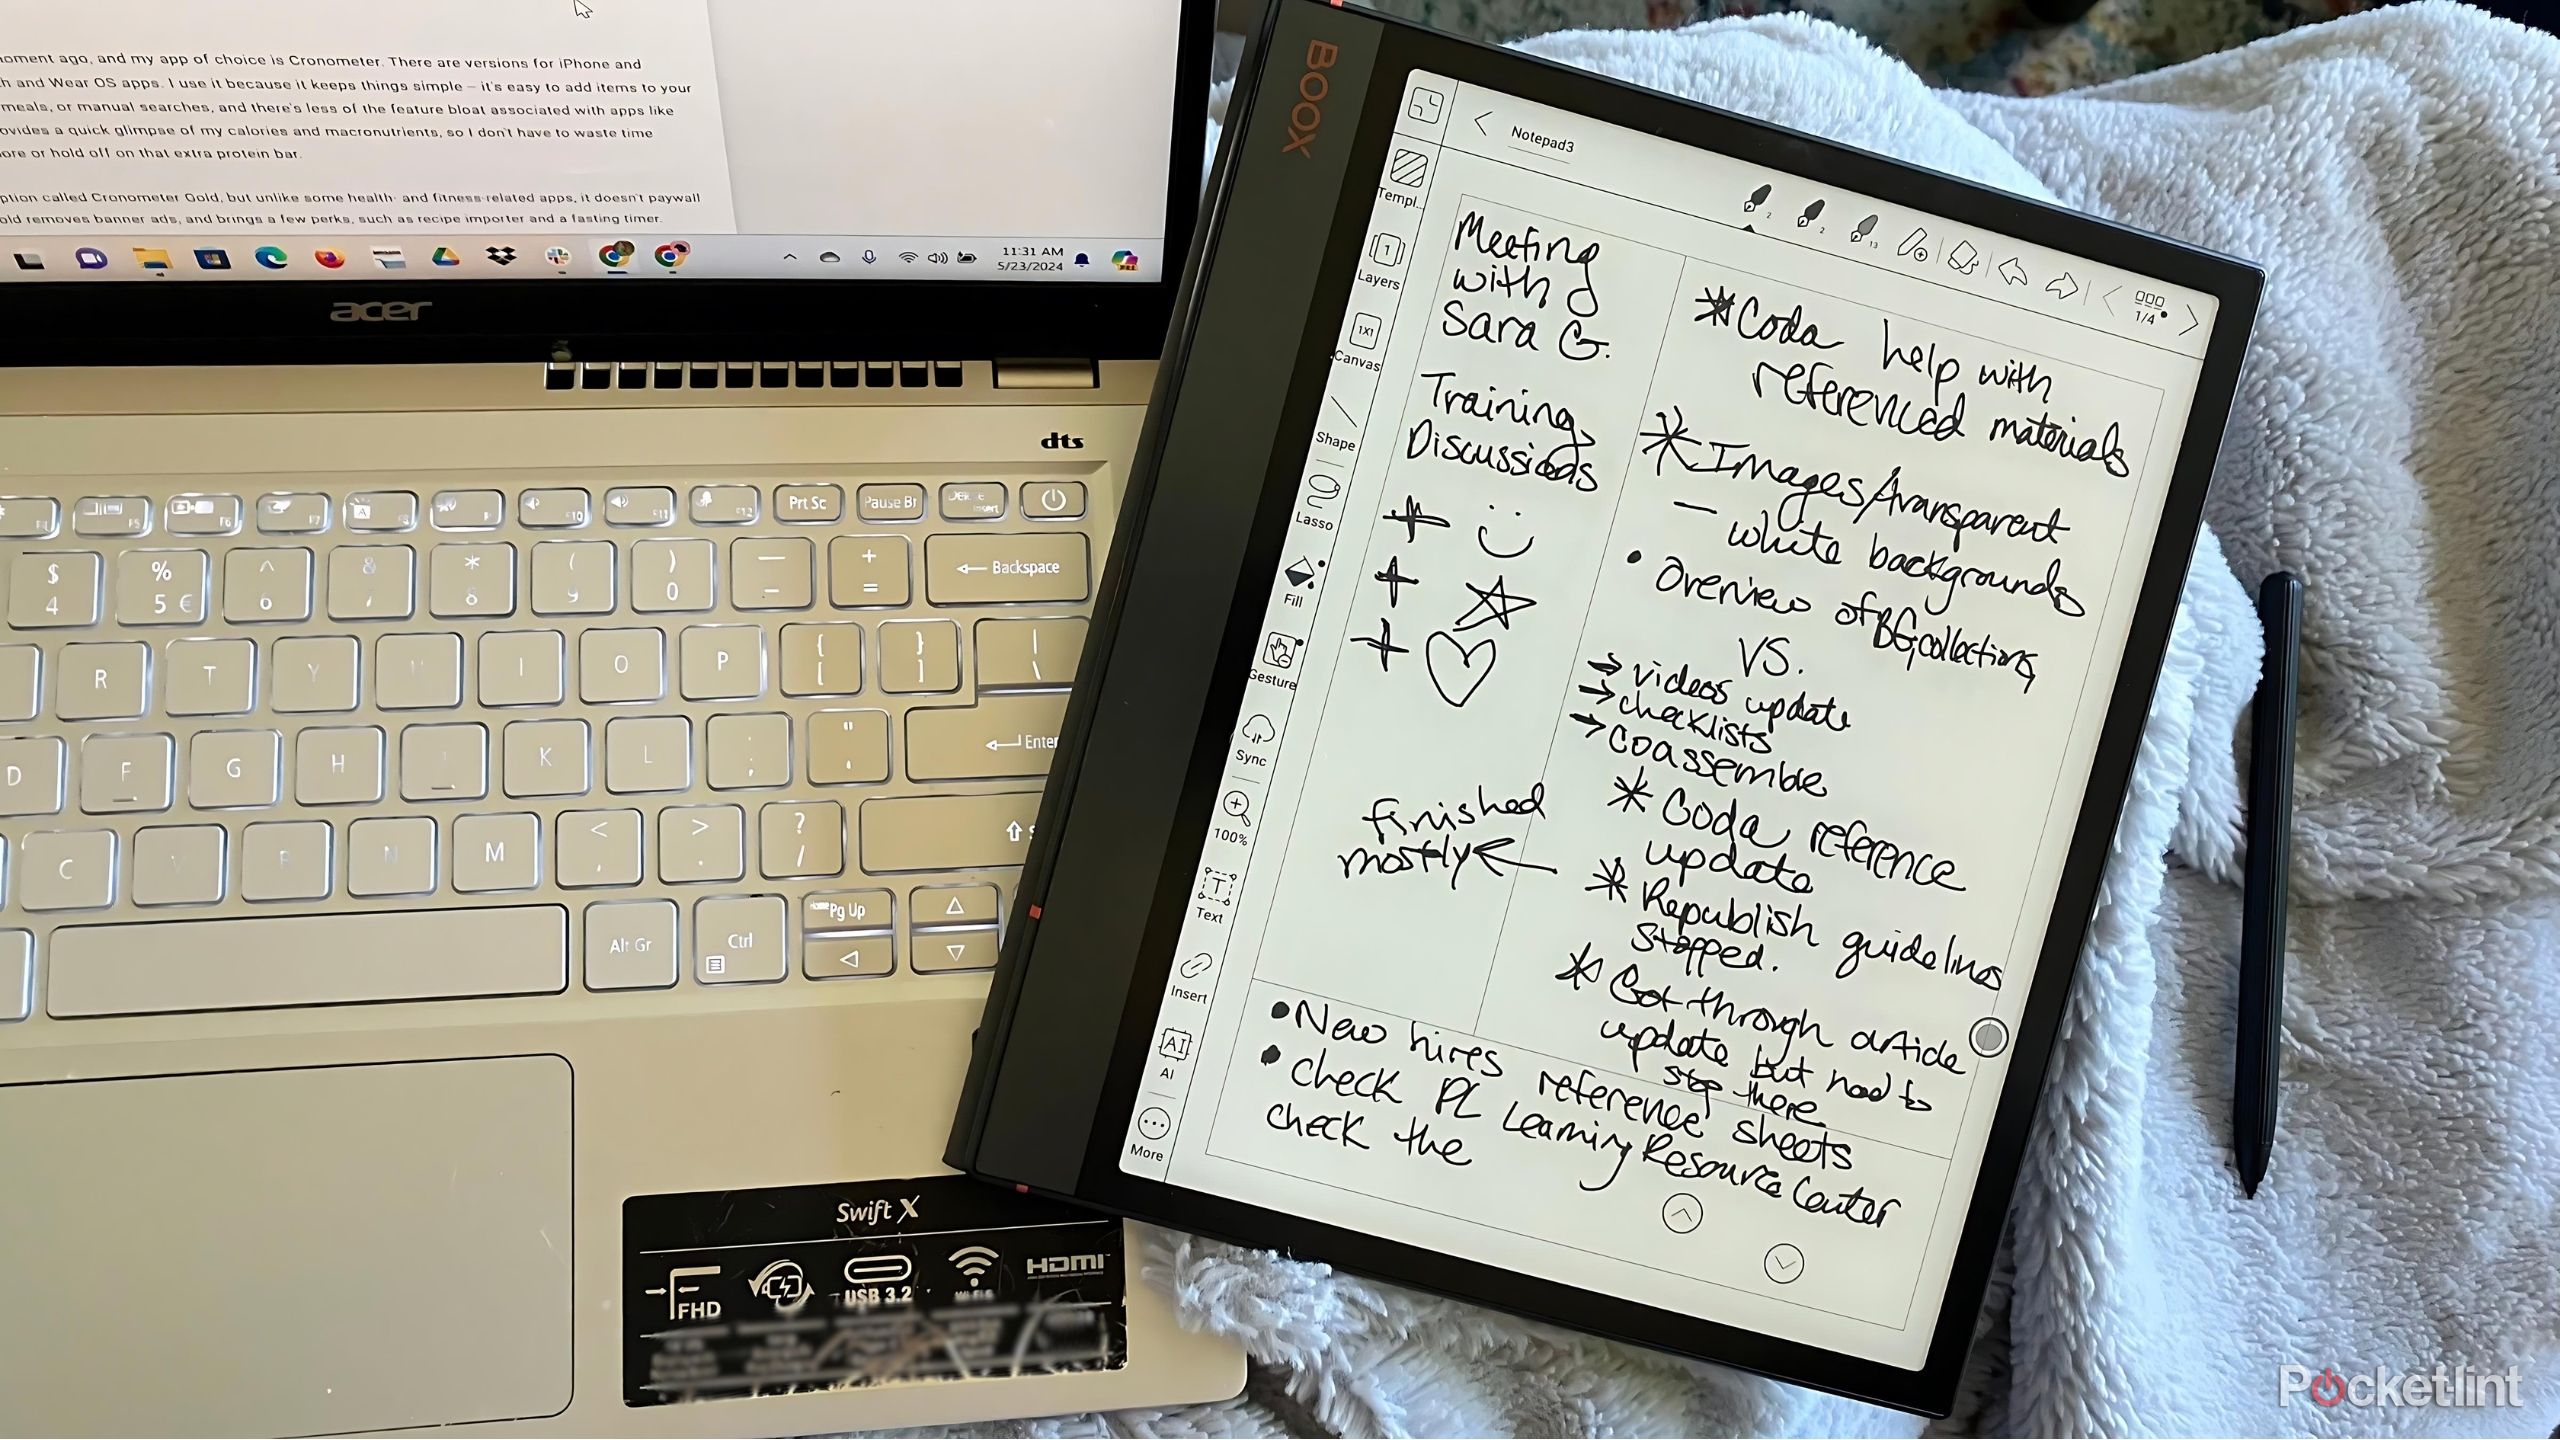 oment ago, and my app of choice is Cronometer. There are versions for iPhone and
h and Wear OS apps. I use it because it keeps things simple – it's easy to add items to your
meals, or manual searches, and there's less of the feature bloat associated with apps like
ovides a quick glimpse of my calories and macronutrients, so I don't have to waste time
ore or hold off on that extra protein bar.
ption called Cronometer Gold, but unlike some health- and fitness-related apps, it doesn't paywall
old removes banner ads, and brings a few perks, such as recipe importer and a fasting timer.
11:31 AM
5/23/2024
acer
dts
F5 F6 F7 F10 F11 F12 Prt Sc Pause Br Delete Insert
$ 4 % 5 € ^ 6 & 7 * 8 ( 9 ) 0 — - + = Backspace
R T Y U I O P { [ } ] | \
D F G H J K L : ; " ' Enter
C V B N M < , > . ? /
Alt Gr Ctrl Home Pg Up
Swift X
FHD
USB 3.2
Wi-Fi 6
HDMI
BOOX
Notepad3
2 2 13
1/4
Templ...
1
Layers
1X1
Canvas
Shape
Lasso
Fill
Gesture
Sync
100%
T
Text
Insert
AI
AI
More
Meeting
with
Sara G.
Training
Discussions
finished
mostly
*Coda help with
referenced materials
*Images/transparent
- white backgrounds
• Overview of BG, collections,
VS.
→ videos update
→ checklists
→ coassemble
* Coda reference
update
* Republish guidelines
stopped.
* Got through article
update but need to
stop there
• New hires reference sheets
• Check PL Learning Resource Center
check the
Pocket-lint